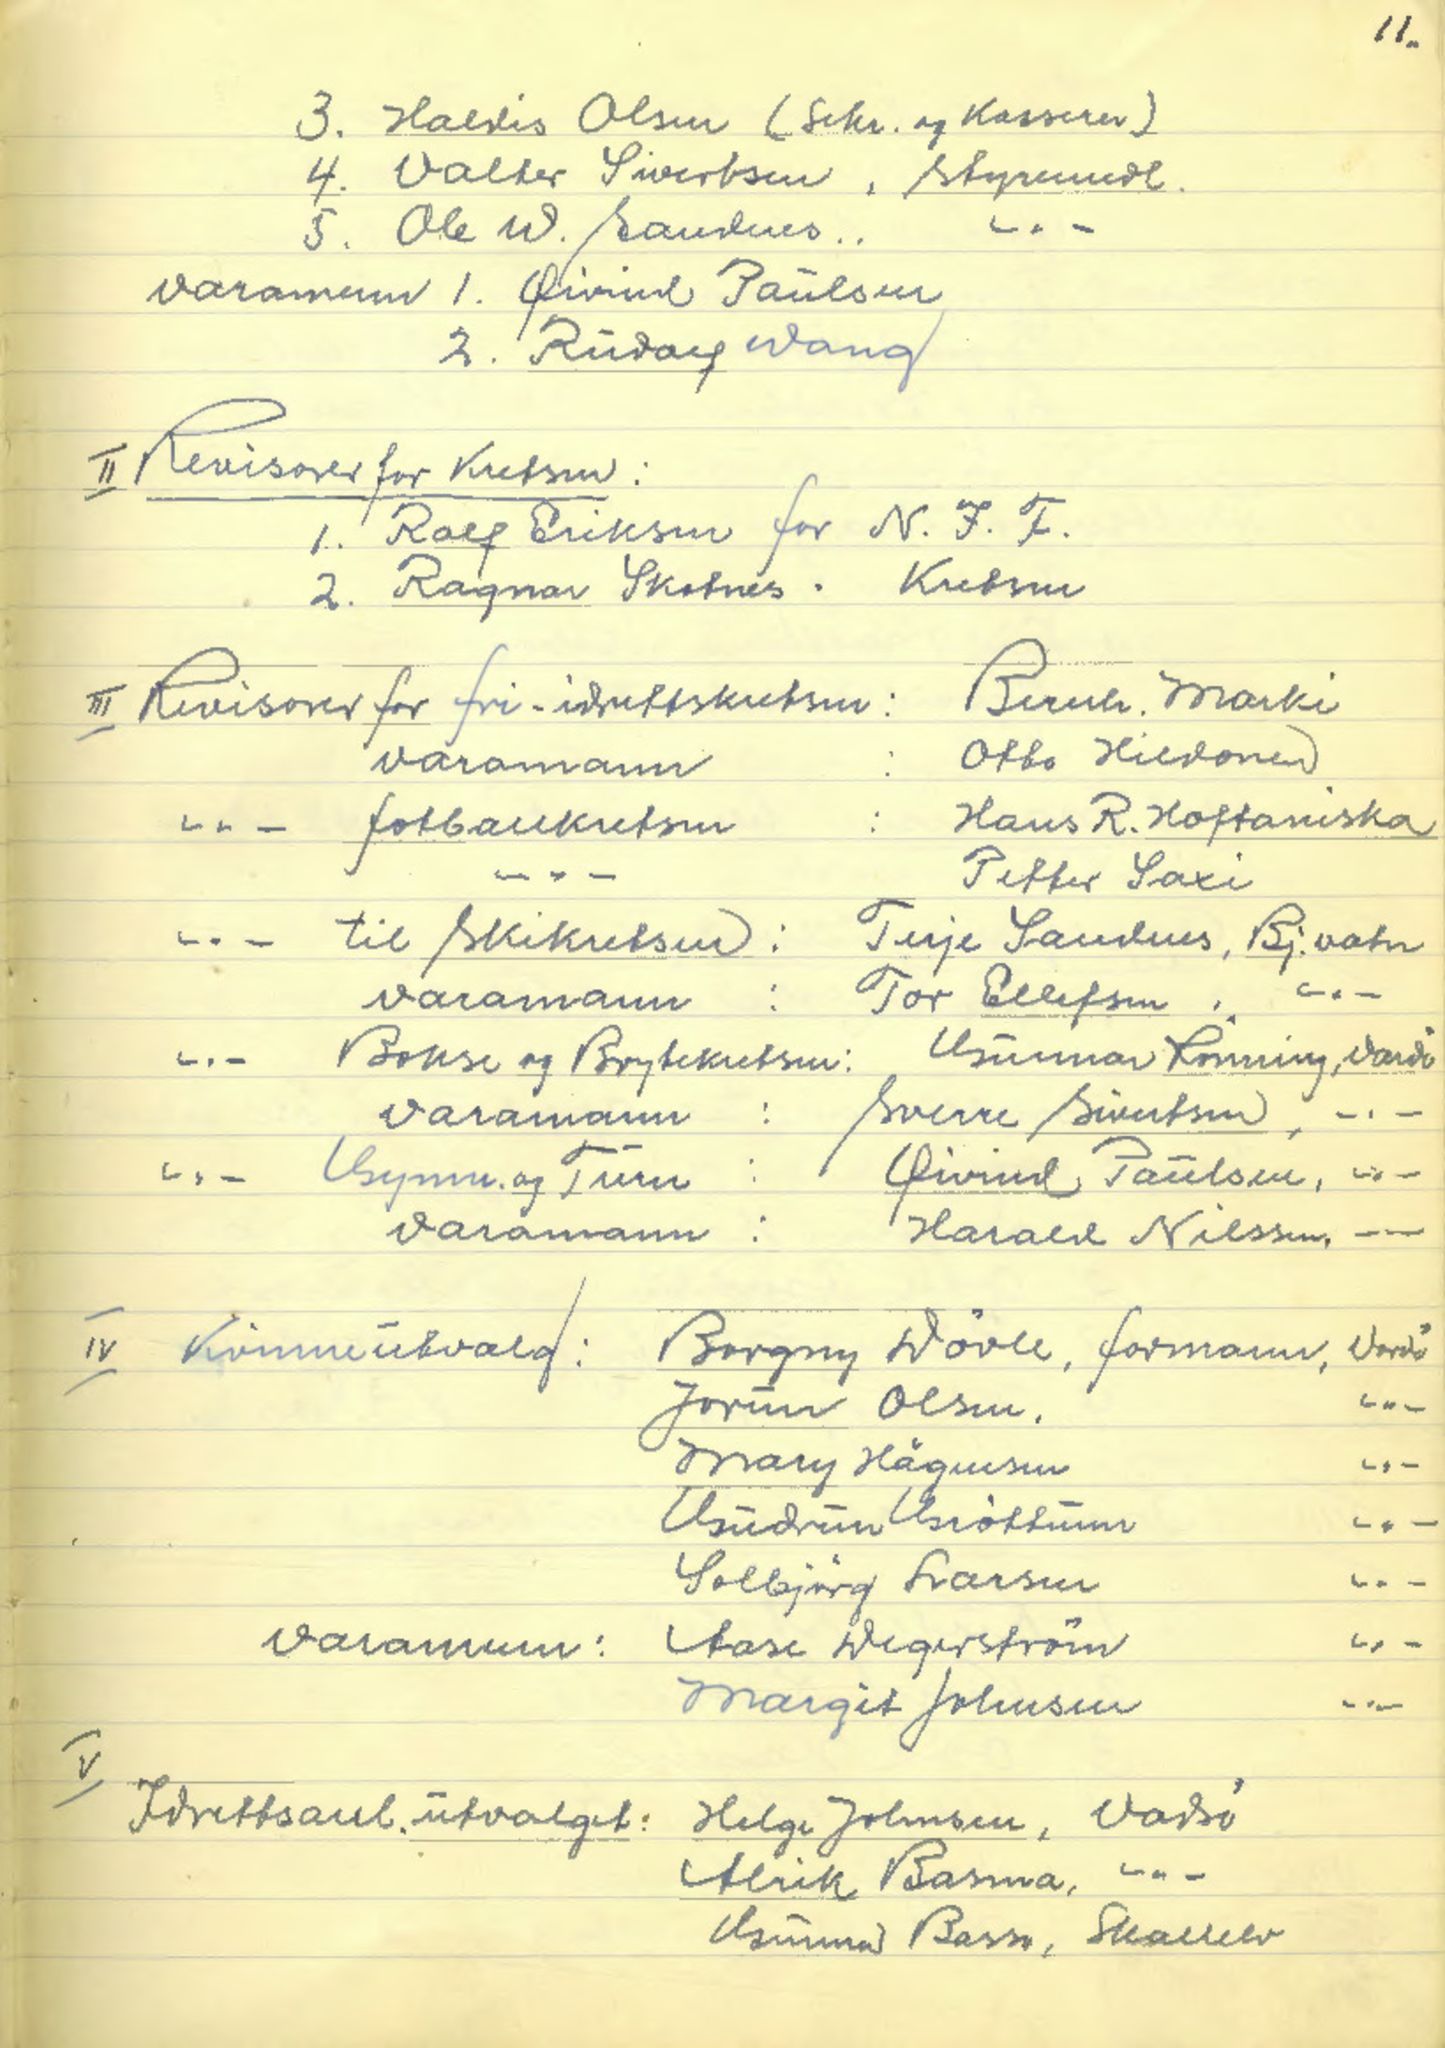 11.
3. Haldis Olsen (Sekr. og Kasserer)
4. Valter Sivertsen, Styremedl.
5. Ole W. Sandnes.. -"-
Varamenn 1. Øivind Paulsen
2. Rudolf Wang
II Revisorer for Kretsen:
1. Rolf Eriksen for N. I. F.
2. Ragnar Skotnes. Kretsen
III Revisorer for fri-idrettskretsen: Bernh. Marki
Varamann : Otto Hildonen
-"- fotballkretsen : Hans R. Hoftaniska
-"- Petter Saxi
-"- til Skikretsen: Terje Sandnes, Bj.vatn
Varamann : Tor Ellefsen, -"-
-"- Bokse og Brytekretsen: Gunnar Rönning, Vardö
Varamann : Sverre Sivertsen, -"-
-"- Gymn. og Turn : Øivind Paulsen, -"-
Varamann : Harald Nilssen, -"-
IV Kvinneutvalg: Borgny Dövle, formann, Vardö
Jorun Olsen. -"-
Mary Hågensen -"-
Gudrun Gröttum -"-
Solbjörg Larsen -"-
Varamenn: Aase Wegerström -"-
Margit Johnsen -"-
V
Idrettsanl. utvalget: Helge Johnsen, Vadsö
Alrik Basma, -"-
Gunnar Basso, Skallelv